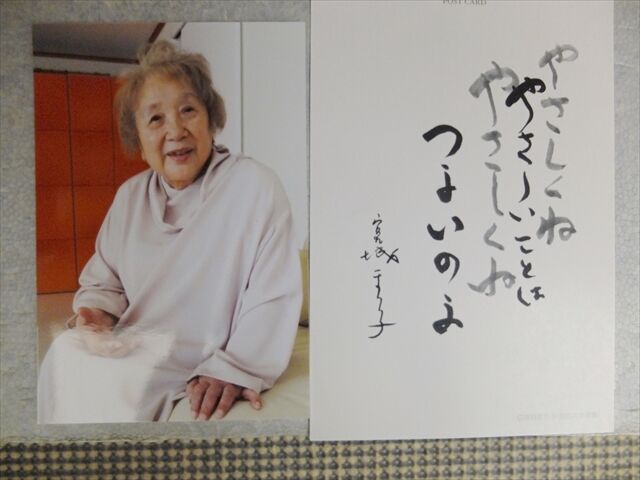 POST CARD
やさしくね
やさしいことは
やさしくね
つよいのよ
宮城まり子